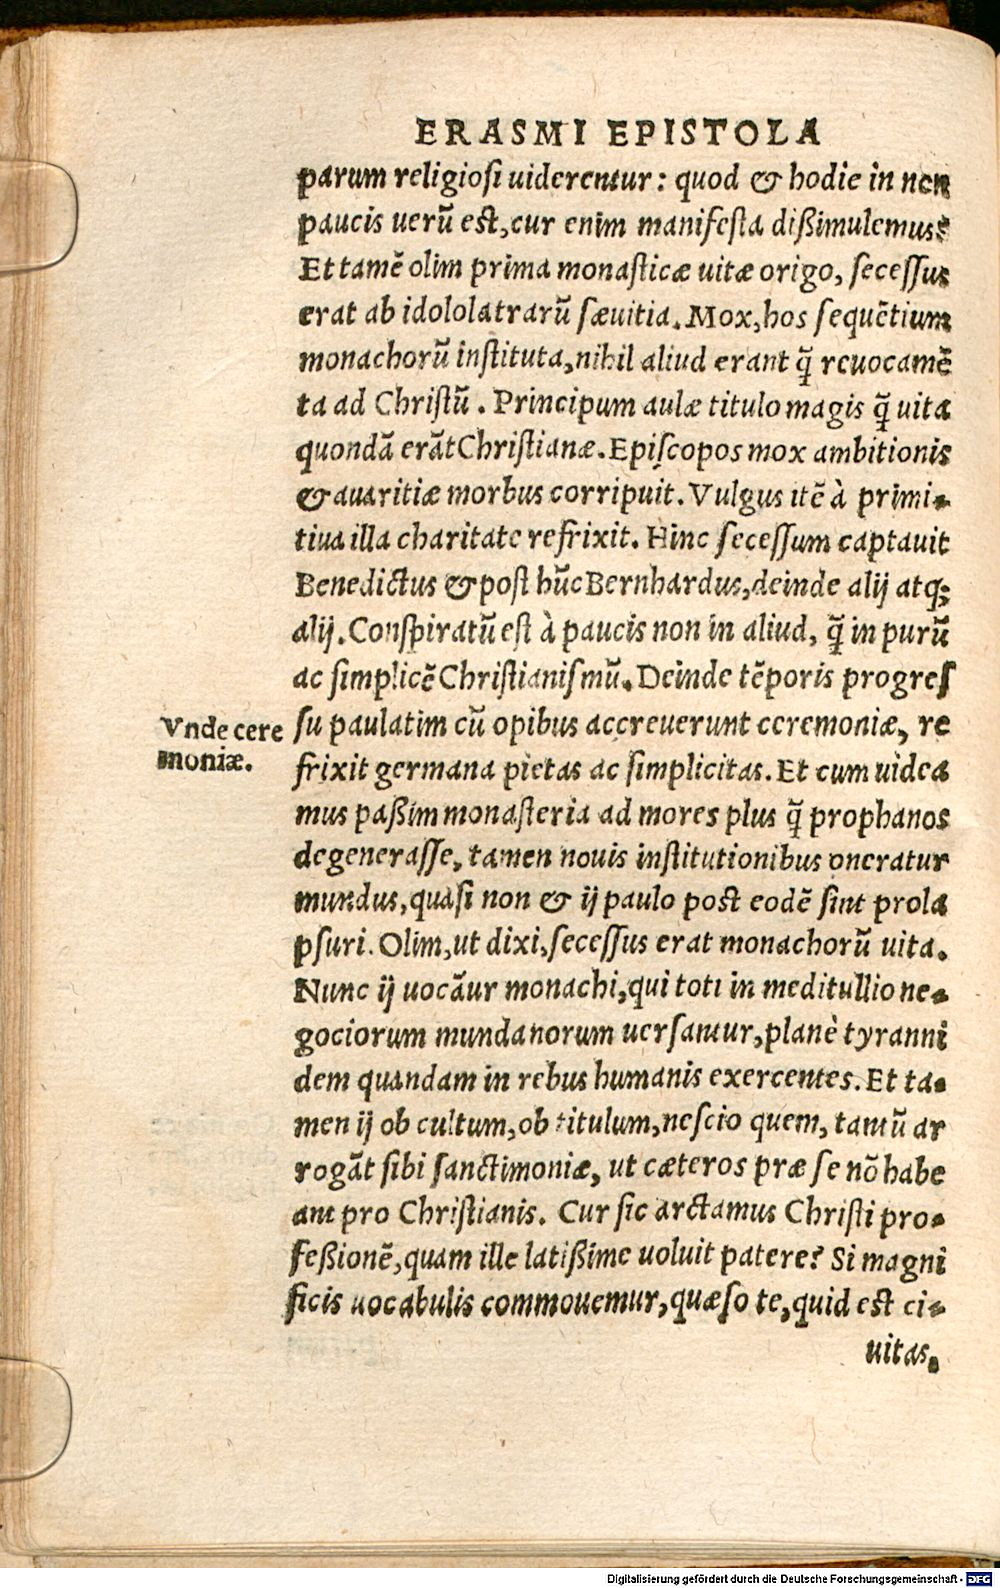 ERASMI EPISTOLA
parum religiosi uiderentur: quod & hodie in non
paucis uerũ est, cur enim manifesta dißimulemus?
Et tamẽ olim prima monasticæ uitæ origo, secessus
erat ab idololatrarũ sæuitia. Mox, hos sequẽtium
monachorũ instituta, nihil aliud erant q̃ reuocamẽ
ta ad Christũ. Principum aulæ titulo magis q̃ uita
quondã erãt Christianæ. Episcopos mox ambitionis
& auaritiæ morbus corripuit. Vulgus itẽ à primi-
tiua illa charitate refrixit. Hinc secessum captauit
Benedictus & post hũc Bernhardus, deinde alij atq;
alij. Conspiratũ est à paucis non in aliud, q̃ in purũ
ac simplicẽ Christianismũ. Deinde tẽporis progres
Vnde cere
moniæ.
su paulatim cũ opibus accreuerunt ceremoniæ, re
frixit germana pietas ac simplicitas. Et cum uidea
mus paßim monasteria ad mores plus q̃ prophanos
degenerasse, tamen nouis institutionibus oneratur
mundus, quasi non & ij paulo post eodẽ sint prola
psuri. Olim, ut dixi, secessus erat monachorũ uita.
Nunc ij uocãur monachi, qui toti in meditullio ne-
gociorum mundanorum uersantur, planè tyranni
dem quandam in rebus humanis exercentes. Et ta-
men ij ob cultum, ob titulum, nescio quem, tantũ ar
rogãt sibi sanctimoniæ, ut cæteros præ se nõ habe
ant pro Christianis. Cur sic arctamus Christi pro-
feßionẽ, quam ille latißime uoluit patere? Si magni
ficis uocabulis commouemur, quæso te, quid est ci-
uitas,
Digitalisierung gefördert durch die Deutsche Forschungsgemeinschaft - DFG